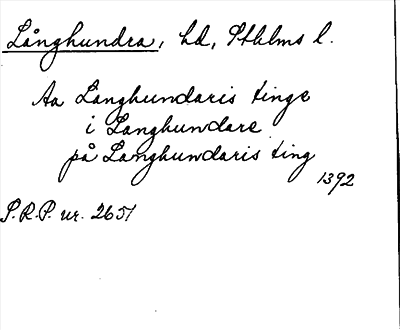 Långhundra, hd, Sthlms l.
Aa Langhundaris tinge
i Langhundare
på Langhundaris ting
1392
S.R.P. nr. 2651